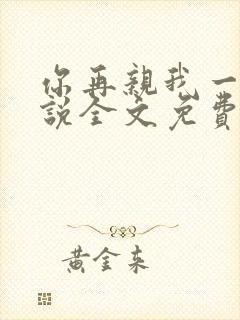 你再親我一
說全文免費
黃金來